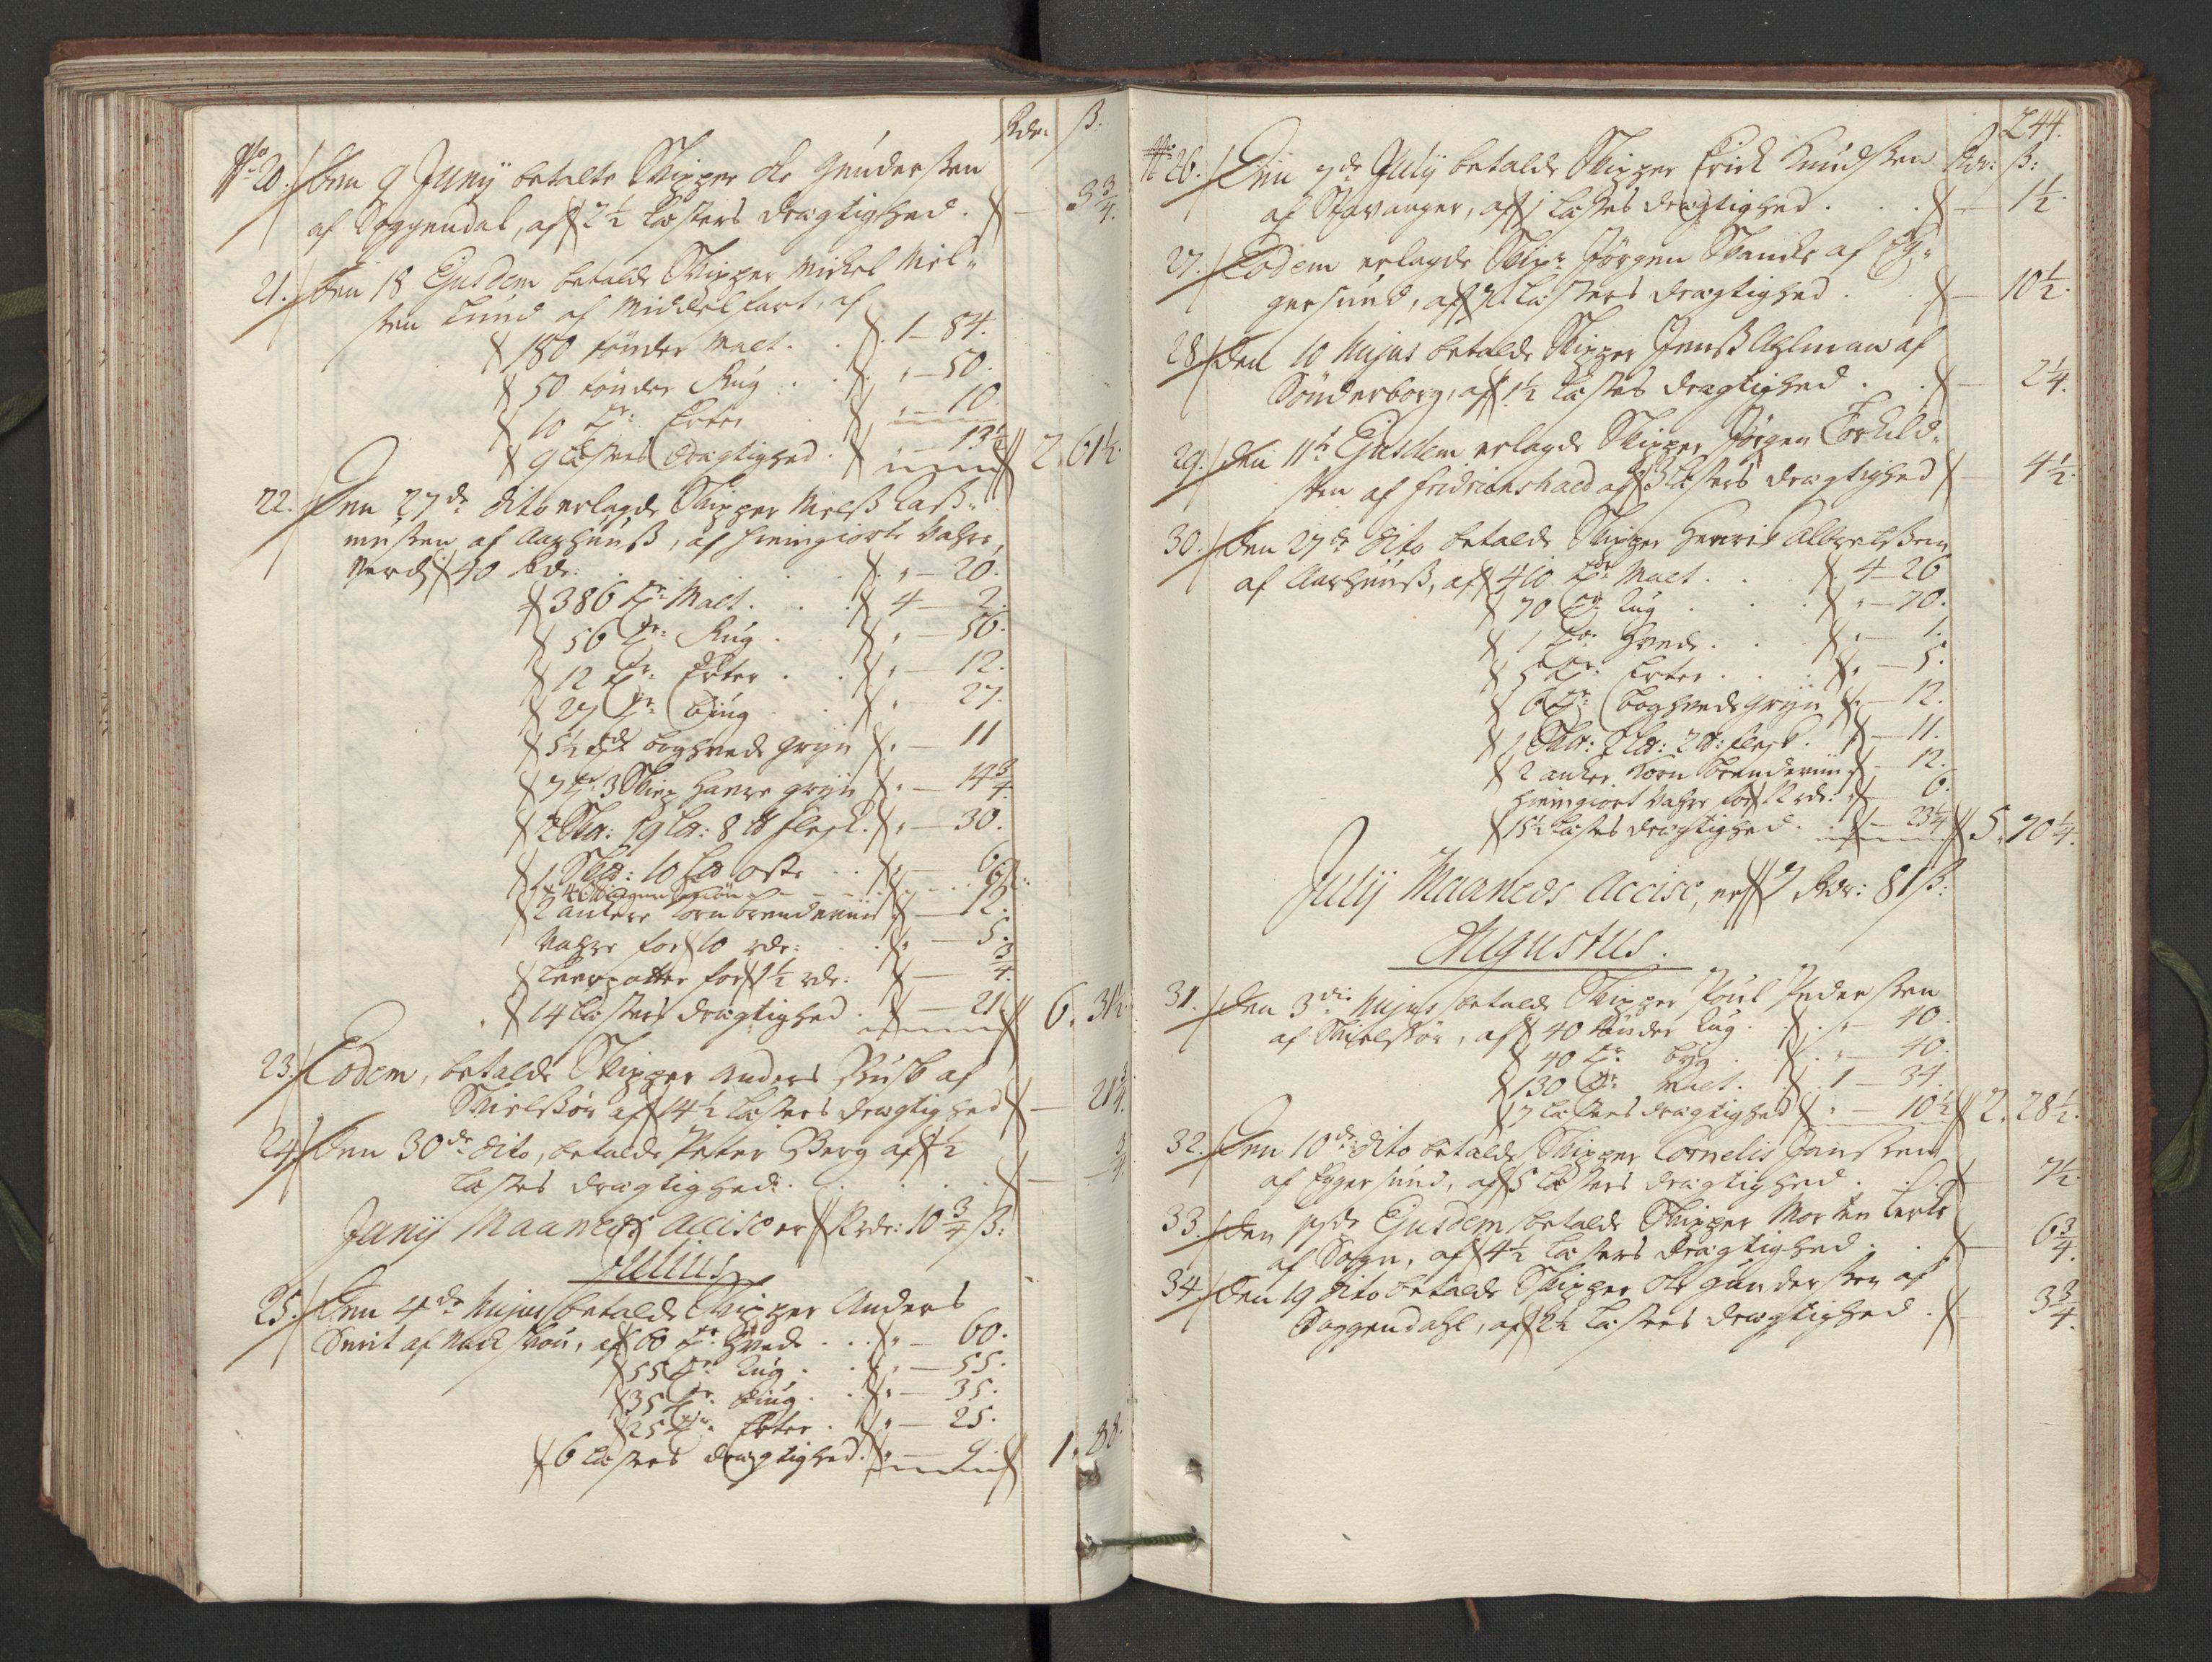 Rdr: ß:
No 20. Den 9 Junij betalte Skipper Ole Gunderssen
af Soggendal, af 2½ Læsters drægtighed . — 3¾.
21. Den 18 Ejusdem betalde Skipper Mickel Niel„
sen Lund af Middelfart, af
180 tønder Malt . . 1 — 84.
50 tønder Rug . . „ — 50.
10 tr: Erter . „ — 10.
9 Læsters drægtighed . „ — 13½ 2. 61½.
22. Den 27de dito erlagde Skipper Nielß Raß„
mussen af Aarhuuß, af Hiemgiorte Vahre,
Verdj 40 Rdr: . . . „ — 20.
386 tr: Malt . . . 4 — 2.
56 tr: Rug . . „ — 56.
12 tr: Erter . . „ — 12.
27 tr: Biug . . „ — 27.
5½ tdr boghvede gryn „ — 11
7 tr: 3 Skiep Havre gryn „ — 14¾
2 Sk℔: 19 L℔: 8 ℔ flesk . „ — 30.
1 Sk℔: 10 L℔ oste . . „ — 6
2 ankere Korn brendeviin „ — 12.
Vahre for 10 rdr: . . „ — 5.
Leerpotter for 1½ rdr: — ¾.
14 Læsters drægtighed . — 21. 6. 31½.
23. Eodem, betalde Skipper Anders Busk af
Skielskiør af 14½ Læsters drægtighed — 21¾.
24. Den 30de dito, betalde Peter Berg af ½
Læstes drægtighed . . . — ¾.
Junij Maaneds Accise er Rdr: 10¾ ß:
Julius
25. Den 4de hujus betalde Skipper Anders
Smit af Nachskou, af 60 tr: Hvede . . „ — 60.
55 tr: Rug . . „ — 55.
35 tr: Biug . . „ — 35.
25 tr: Erter . „ — 25.
6 Læsters drægtighed . „ — 9. 1. 88.
244.
No 26. Den 7de Julij betalde Skipper Erick Knudssen Rdr: ß:
af Stavanger, af 1 Læstes drægtighed . . . — 1½.
27. Eodem erlagde Skipr Jørgen Svanike af Eg„
gersund, af 7 Læsters drægtighed . . — 10½.
28. Den 10 hujus betalde Skipper Jenß Ahlman af
Sønderborg, af 1½ Læstes drægtighed . . — 2¼.
29. Den 11te Ejusdem erlagde Skipper Jørgen Torkild„
sen af Fridrichshald af 3 Læsters drægtighed — 4½.
30. Den 27de dito betalde Skipper Henrik Albretssen
af Aarhuuß, af 410 tr: Malt . . 4 — 26
70 tr: Rug . . . „ — 70.
1 tr: Hvede . . „ — 1.
5 tr: Erter . . . „ — 5.
6 tr: boghvede gryn „ — 12.
1 Sk℔: 2 L℔: 2 ℔: flesk . — 11.
2 anker Korn brendeviin — 12.
Hiemgiort Vahre for 12 rdr: — 6.
15½ Læstes drægtighed . — 23¼ 5. 70¼.
Julij Maaneds Accise, er 7 Rdr: 81 ß:
Augustus.
31. Den 3die hujus betalde Skipper Poul Pedersen
af Skielskiør, af 40 tønder Rug . . „ — 40.
40 tr: byg . . „ — 40.
130 tr: Malt . . 1 — 34.
7 Læsters drægtighed „ — 10½ 2. 28½.
32. Den 10de dito betalde Skipper Cornelis Janssen
af Eggersund, af 5 Læsters drægtighed . . — 7½.
33. Den 17de Ejusdem betalde Skipper Morten Lerke
af Sogn, af 4½ Læsters drægtighed . . — 6¾.
34. Den 19 dito betalde Skipper Ole Gunderssen af
Soggendahl, af 2½ Læsters drægtighed . — 3¾.